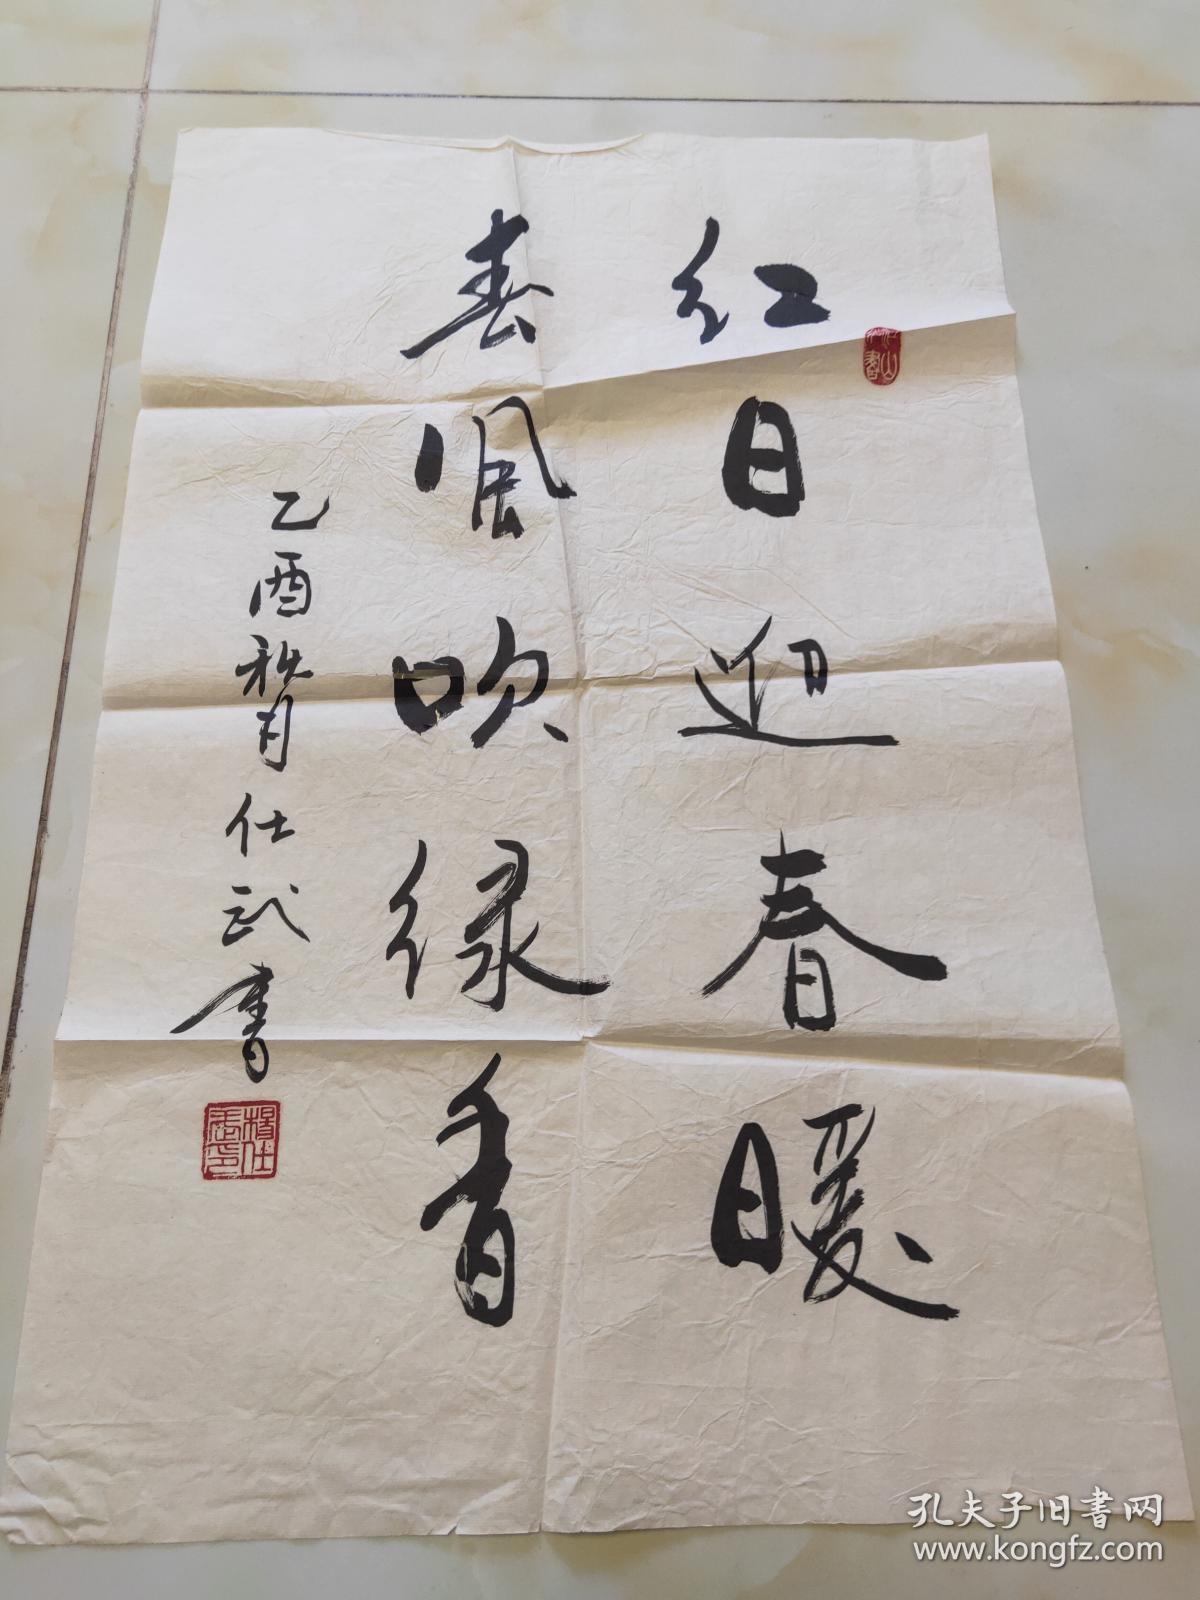 红日迎春暖
春风吹绿香
乙酉秋月仕武书
杨仕武印
孔夫子旧书网
www.kongfz.com